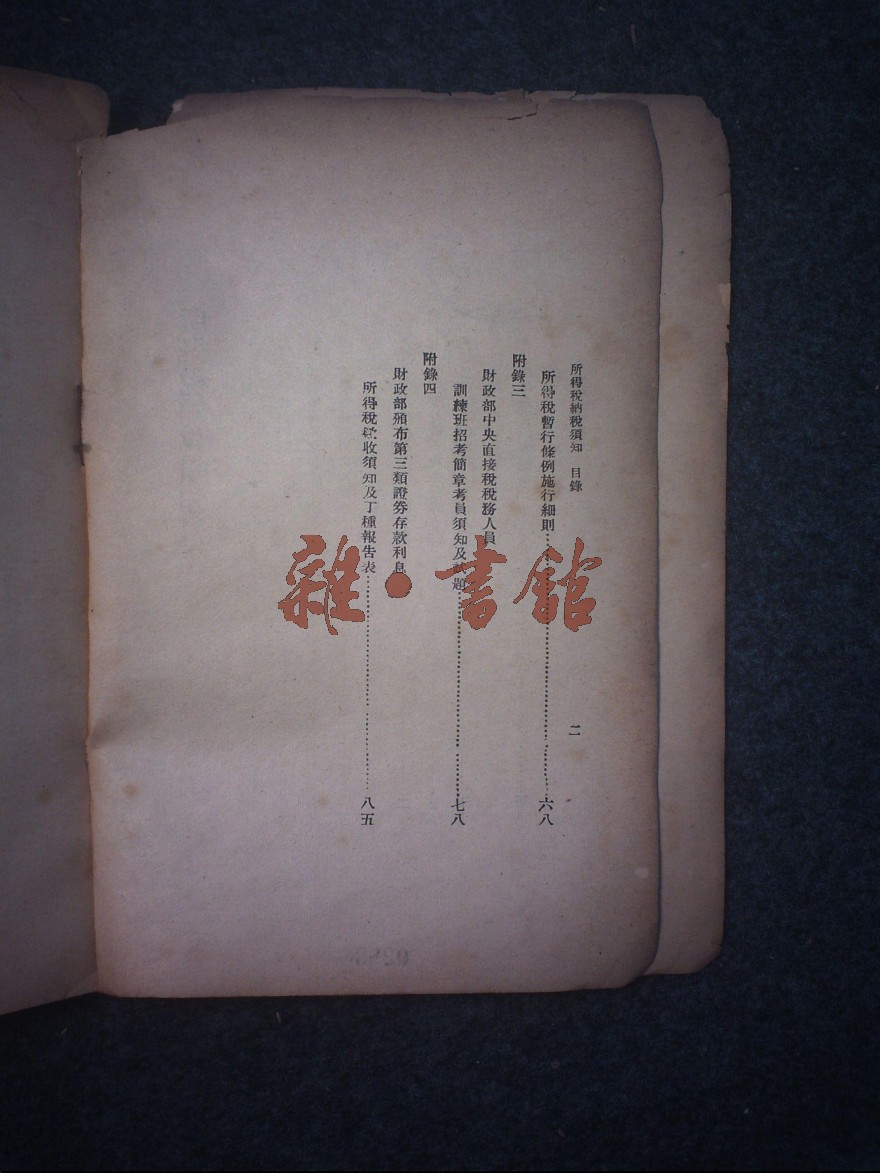 所得稅納稅須知　目錄　二
所得稅暫行條例施行細則……六八
附錄三
財政部中央直接稅稅務人員
訓練班招考簡章考員須知及試題……七八
附錄四
財政部頒布第三類證券存款利息
所得稅 收須知及丁種報告表……八五
雜·書館